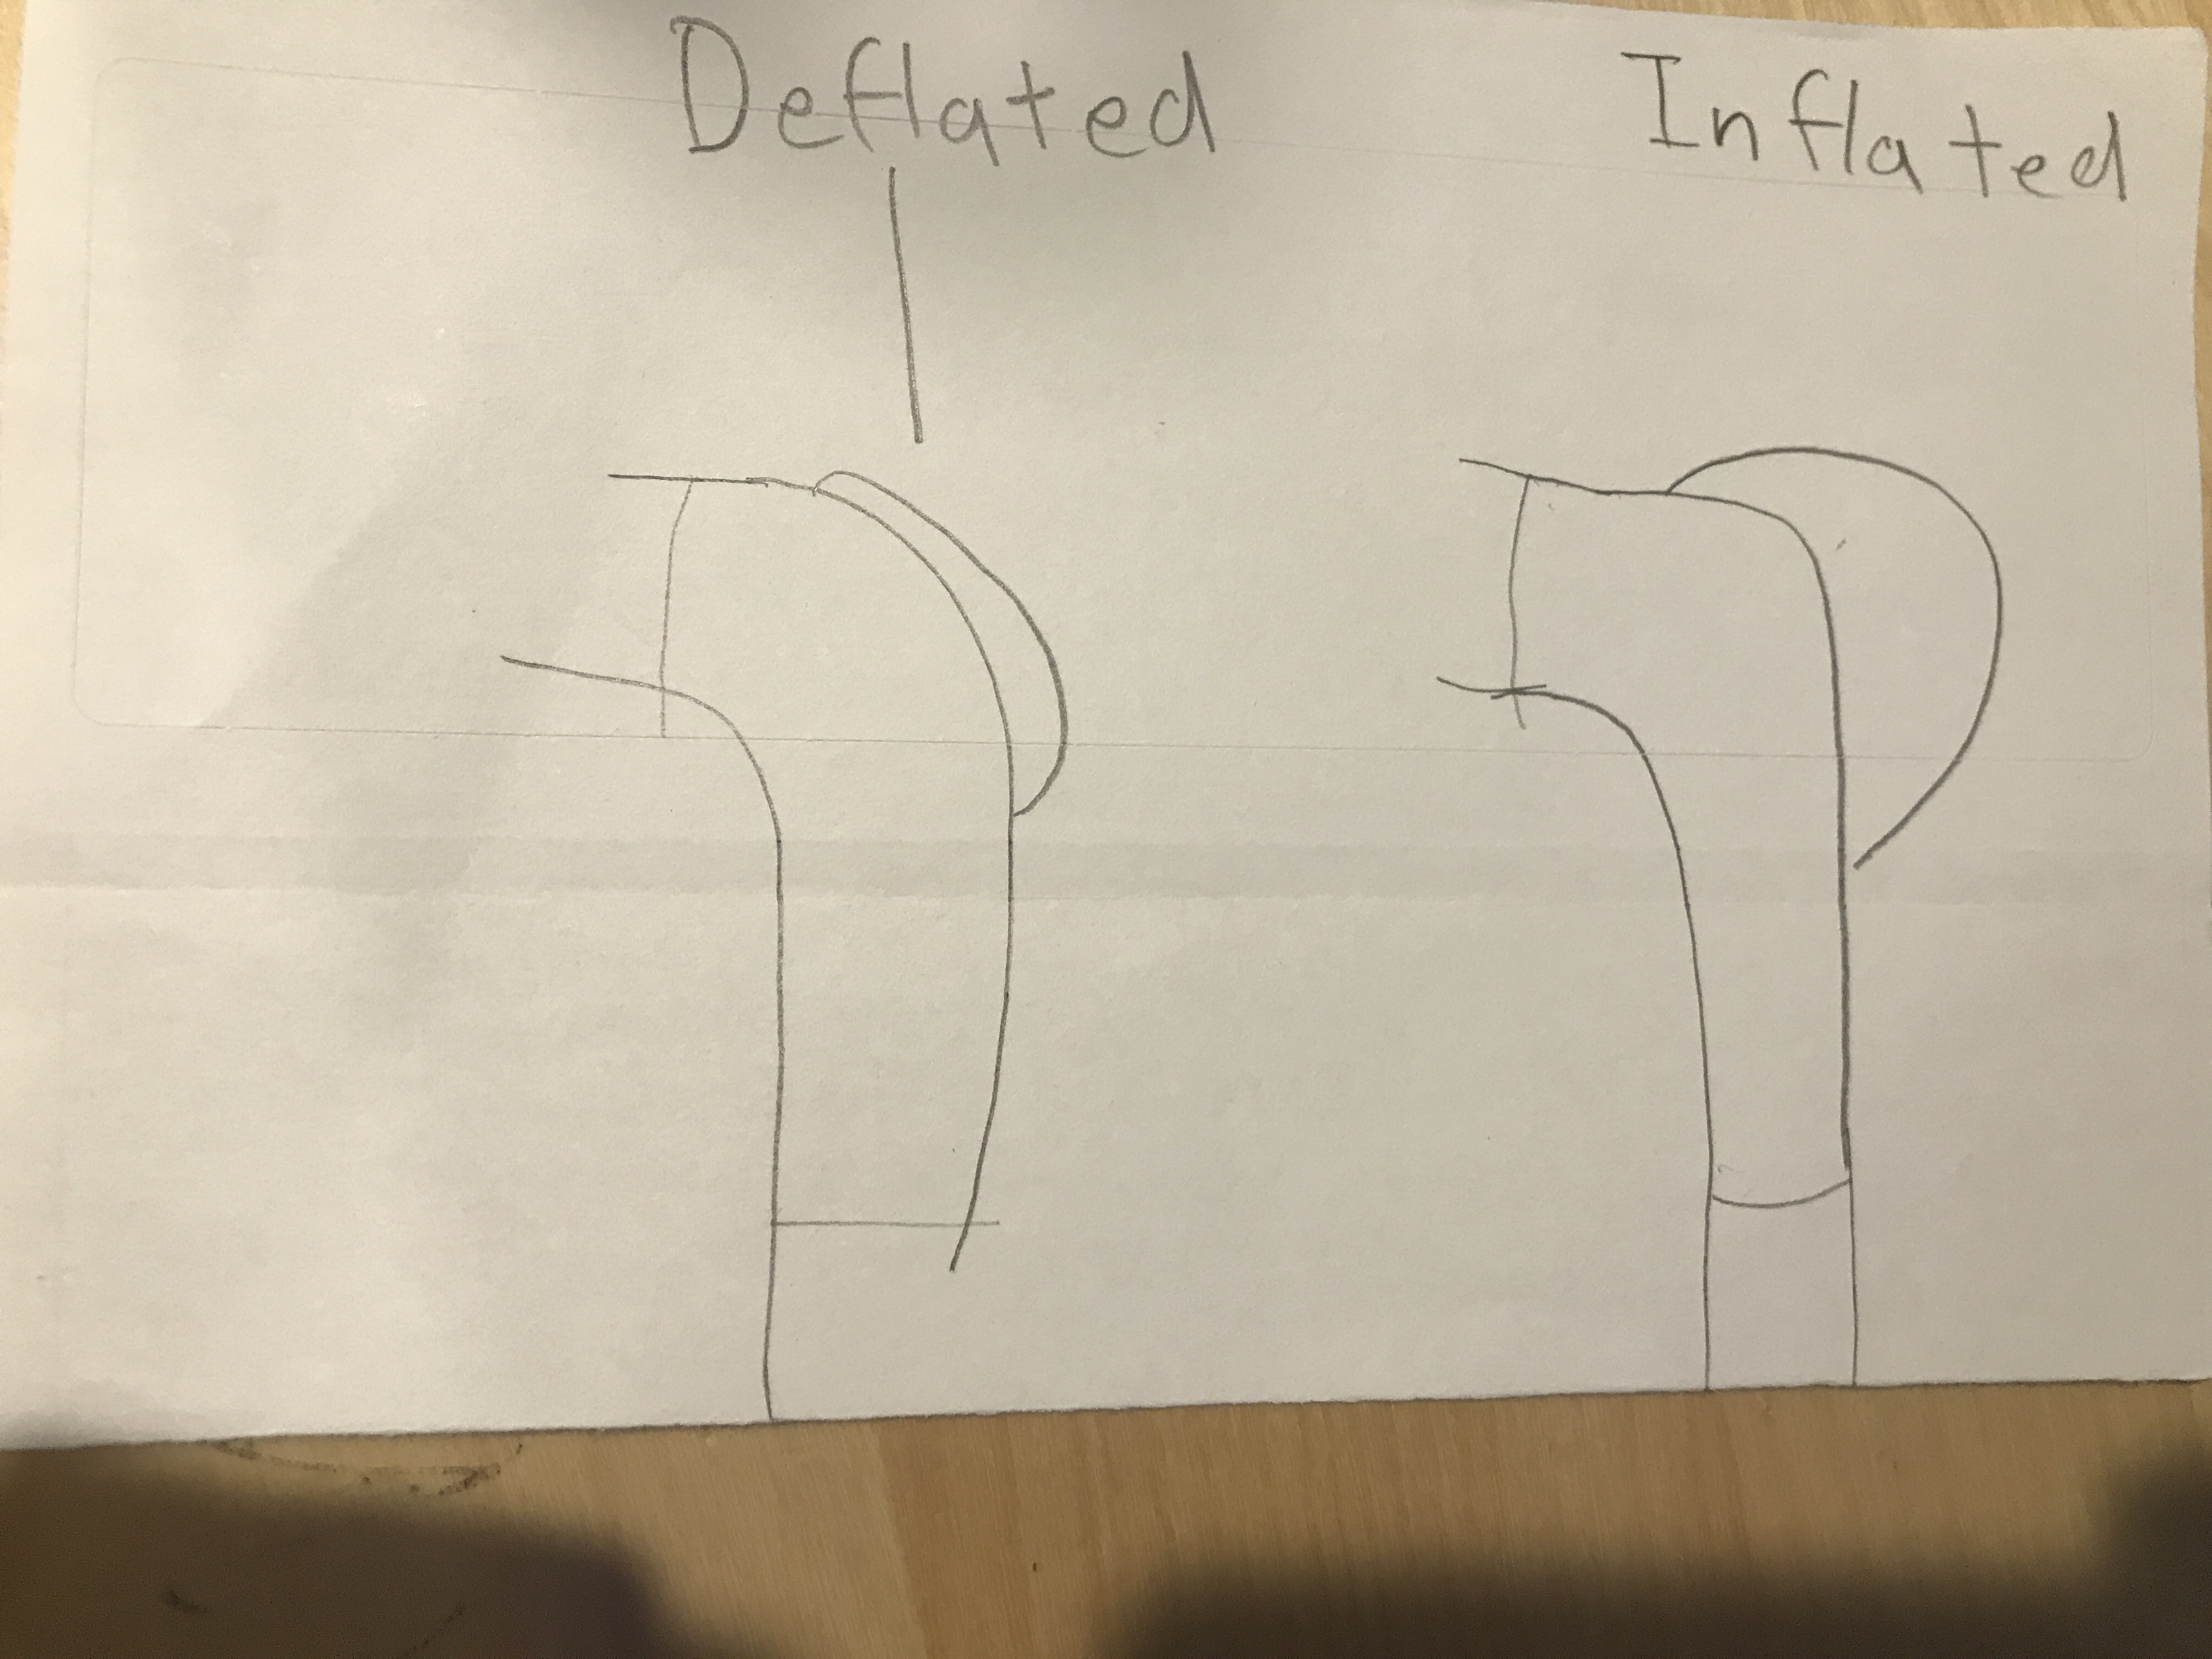 Deflated
Inflated